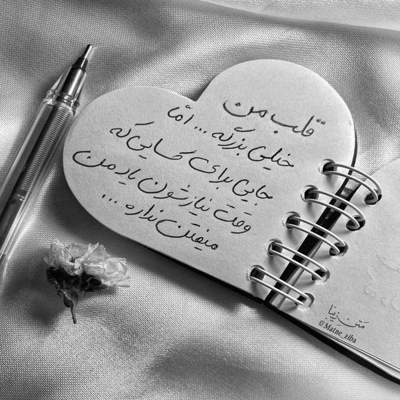 قلب من
خیلی بزرگه ... امّا
جایی برای کسایی که
وقت نیازشون یاد من
میفتن نداره ...
متن زیبا
@Matne_ziba